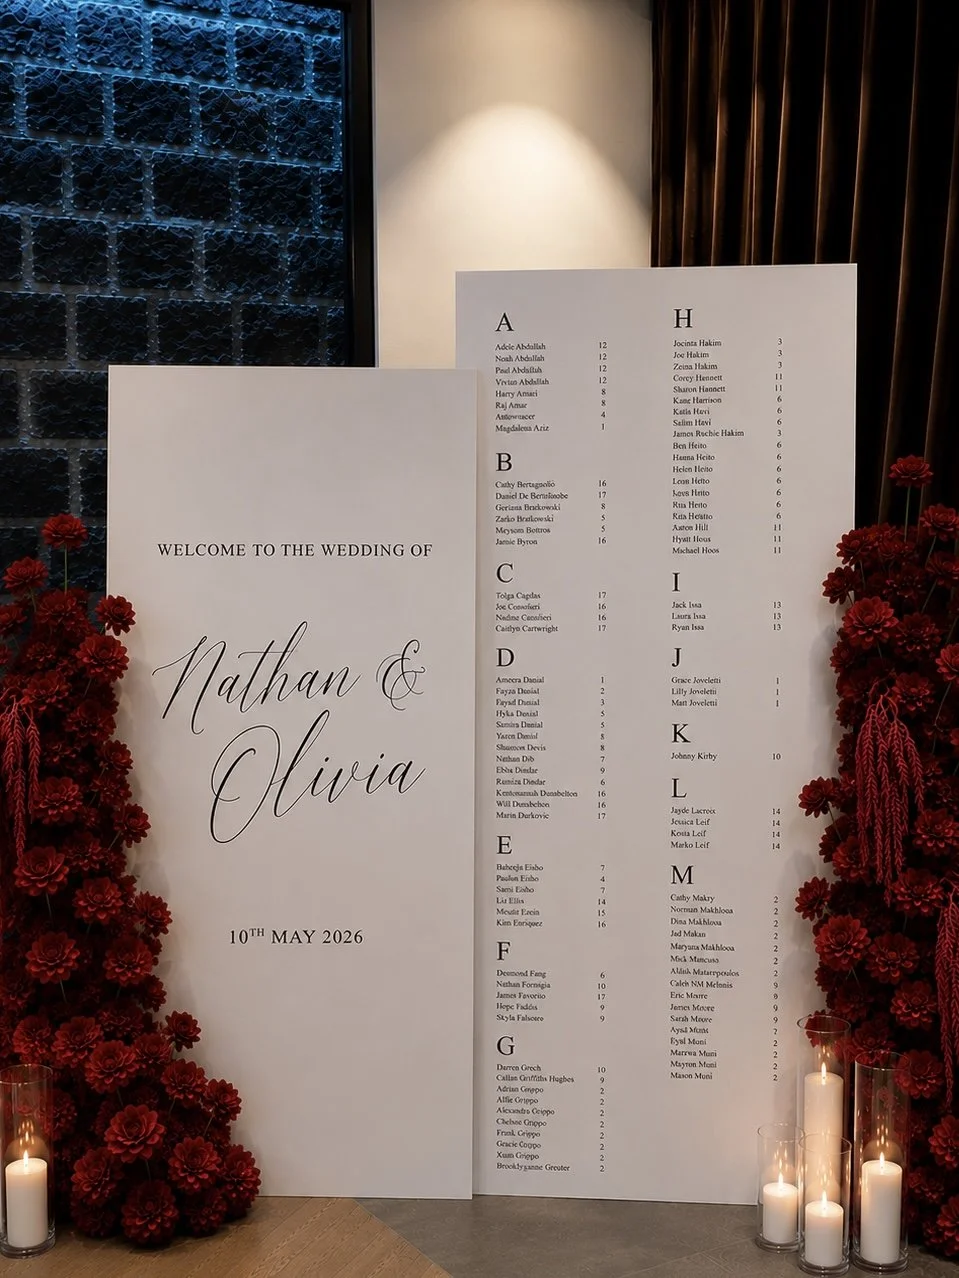 WELCOME TO THE WEDDING OF
Nathan &
Olivia
10TH MAY 2026
A
Adele Abdullah 12
Noah Abdullah 12
Paul Abdullah 12
Vivian Abdullah 12
Harry Amari 8
Raj Amar 8
4
Magdalena Aziz 1
B
Cathy Bertagnolio 16
Daniel De 17
Goriana Bratkowski 8
Zarko Bratkowski 5
Meysom Bottros 5
Jamie Byron 16
C
Tolga Cagdas 17
Joe 16
Nadine 16
Caitlyn Cartwright 17
D
Ameera Danial 1
Fayza Danial 2
Fayad Danial 3
Hyka Danial 5
Samira Danial 5
Yazen Danial 8
Shannon Devis 8
Nathan Dib 7
Ebba Dindar 9
Ramiza Dindar 6
Dunsbelton 16
Will Dunsbelton 16
Marin Durkovic 17
E
Baheeja Eisho 7
Paulon Eisho 4
Sami Eisho 7
Liz Ellis 14
15
Kim Enriquez 16
F
Desmond Fang 6
Nathan Fornagia 10
James Favorito 17
Hope Faddis 9
Skyla Falsone 9
G
Darren Grech 10
Callan Griffiths Hughes 9
Adrian Grippo 2
Alfie Grippo 2
Alexandra Grippo 2
Chelsae Grippo 2
Frank Grippo 2
Gracie Grippo 2
Xum Grippo 2
Brooklyganne Greuter 2
H
Jacinta Hakim 3
Joe Hakim 3
Zeina Hakim 3
Corey Hannett 11
Sharon Hannett 11
Kane Harrison 6
Katia Havi 6
Salim Havi 6
James Ruchie Hakim 3
Ben Heito 6
Hanna Heito 6
Helen Heito 6
Leon Heito 6
Heito 6
Rita Heito 6
Rita 6
Aaron Hill 11
Hyatt Hoos 11
Michael Hoos 11
I
Jack Issa 13
Laura Issa 13
Ryan Issa 13
J
Grace Joveletti 1
Lilly Joveletti 1
Matt Joveletti 1
K
Johnny Kirby 10
L
Jayde Lacroix 14
Jessica Leif 14
Kosta Leif 14
Marko Leif 14
M
Cathy Makry 2
Norman Makhloua 2
Dina Makhloua 2
Jad Makan 2
Maryana Makhloua 2
Mick Mancuso 2
Matsaropoulos 2
Caleb NM McInnis 9
Eric Moore 9
James Moore 9
Sarah Moore 9
Muni
Eysl Muni 2
Marrwa Muni 2
Mayron Muni 2
Mason Muni 2